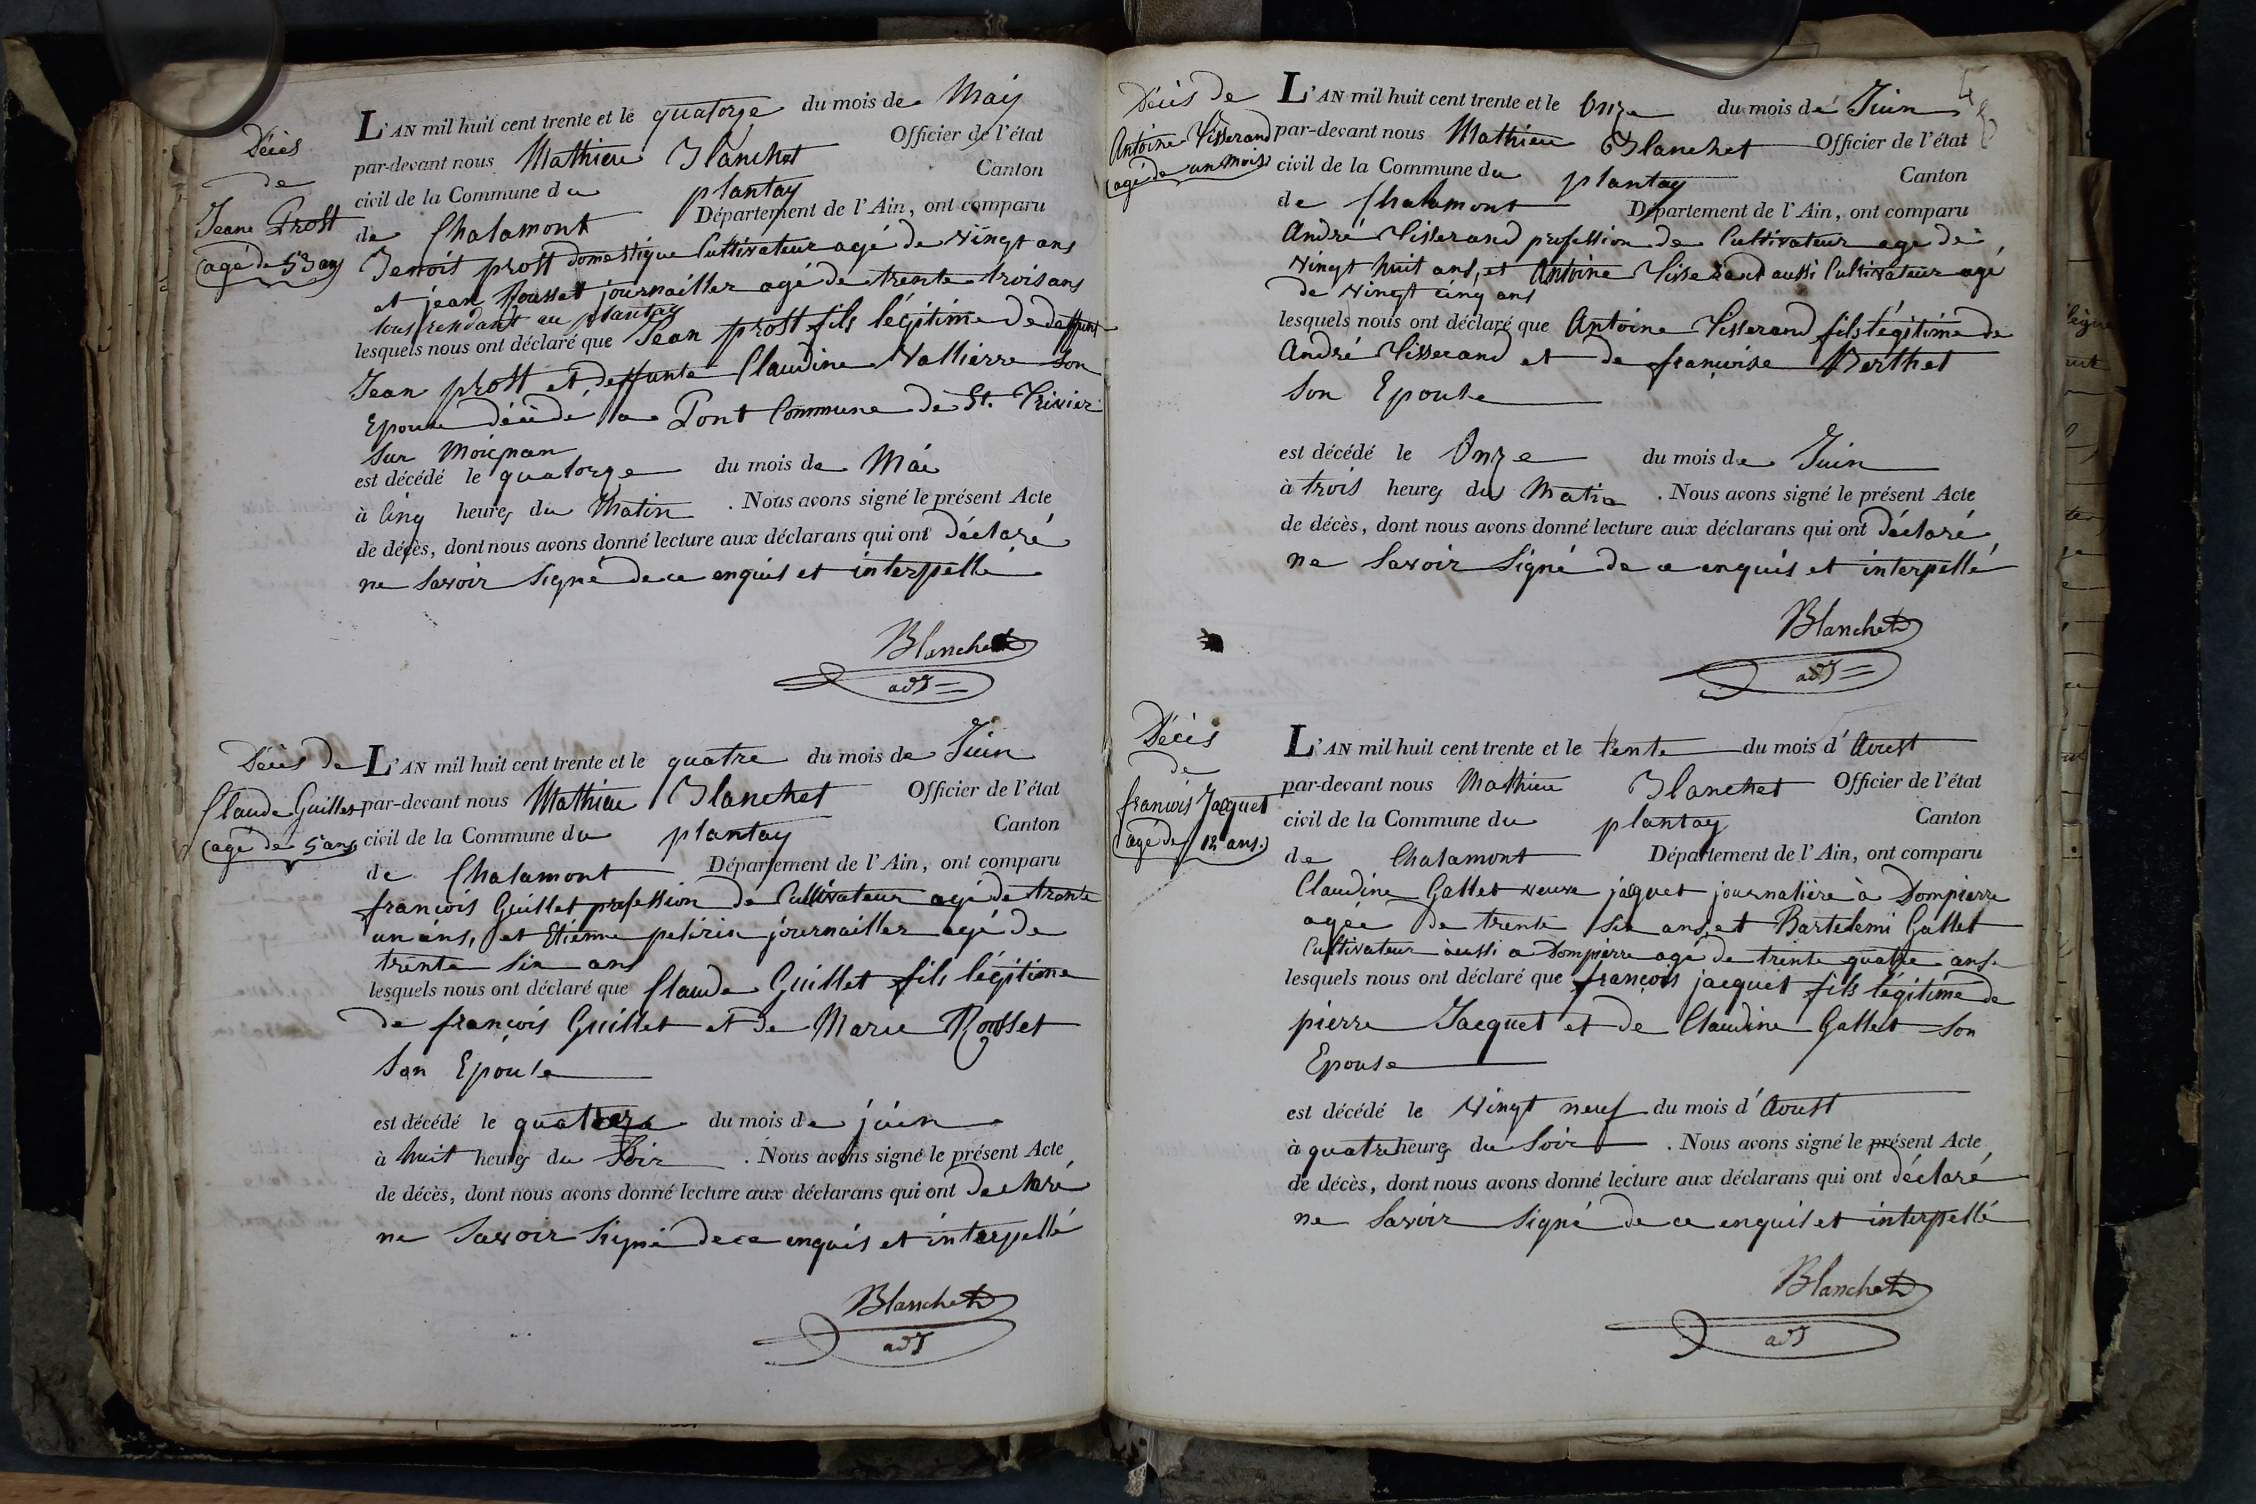 Décès
de
Jean Prost
agé de 53 ans
L'AN mil huit cent trente et le quatorze du mois de May
par-devant nous Mathieu Blanchet Officier de l'état
civil de la Commune du plantay Canton
de Chalamont Département de l'Ain, ont comparu
Benoit prost domestique Cultivateur agé de vingt ans
et jean Rousset journailler agé de trente trois ans
tous rendant au plantay
lesquels nous ont déclaré que Jean prost fils légitime de deffunt
Jean prost et deffunte Claudine Vallierre son
Epouse décédé a Pont Commune de St. Trivier
sur Moignan
est décédé le quatorze du mois de Mai
à Cinq heures du Matin . Nous avons signé le présent Acte
de décès, dont nous avons donné lecture aux déclarans qui ont déclaré
ne savoir signé de ce enquis et interpellé
Blanchet
adj
Décès de
Claude Guillet
agé de 5 ans
L'AN mil huit cent trente et le quatre du mois de Juin
par-devant nous Mathieu Blanchet Officier de l'état
civil de la Commune du plantay Canton
de Chalamont Département de l'Ain, ont comparu
françois Guillet profession de Cultivateur agé de trante
un ans, et Etienne pelirin journailler agé de
trente six ans
lesquels nous ont déclaré que Claude Guillet fils légitime
de françois Guillet et de Marie Rousset
son Epouse
est décédé le du mois de juin
à huit heures du Soir . Nous avons signé le présent Acte
de décès, dont nous avons donné lecture aux déclarans qui ont declaré
ne savoir signé de ce enquis et interpellé
Blanchet
adj
48
Décès de
Antoine Tisserand
agé de un mois
L'AN mil huit cent trente et le Onze du mois de Juin
par-devant nous Mathieu Blanchet Officier de l'état
civil de la Commune du plantay Canton
de Chalamont Département de l'Ain, ont comparu
André Tisserand profession de Cultivateur age de
vingt huit ans, et Antoine Tisserand aussi Cultivateur agé
de vingt cinq ans
lesquels nous ont déclaré que Antoine Tisserand fils légitime de
André Tisserand et de françoise Berthet
son Epouse
est décédé le Onze du mois de Juin
à trois heures du Matin . Nous avons signé le présent Acte
de décès, dont nous avons donné lecture aux déclarans qui ont déclaré
ne savoir signé de ce enquis et interpellé
Blanchet
adj
Décès
de
françois Jacquet
agé de 12 ans.
L'AN mil huit cent trente et le trente du mois d'Aoust
par-devant nous Mathieu Blanchet Officier de l'état
civil de la Commune du plantay Canton
de Chalamont Département de l'Ain, ont comparu
Claudine Gallet veuve jaquet journalière à Dompierre
agée de trente six ans, et Bartelemi Gallet
Cultivateur aussi a Dompierre agé de trente quatre ans
lesquels nous ont déclaré que françois jacquet fils légitime de
pierre Jacquet et de Claudine Gallet son
Epouse
est décédé le vingt neuf du mois d'Aoust
à quatre heures du Soir . Nous avons signé le présent Acte
de décès, dont nous avons donné lecture aux déclarans qui ont déclaré
ne savoir signé de ce enquis et interpellé
Blanchet
adj